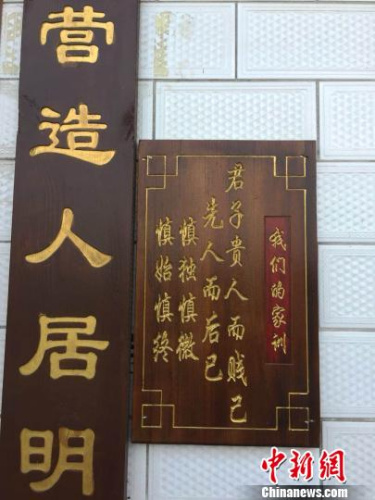 营造人居明
我们的家训
君子贵人而贱己
先人而后己
慎独慎微
慎始慎终
中新网
Chinanews.com